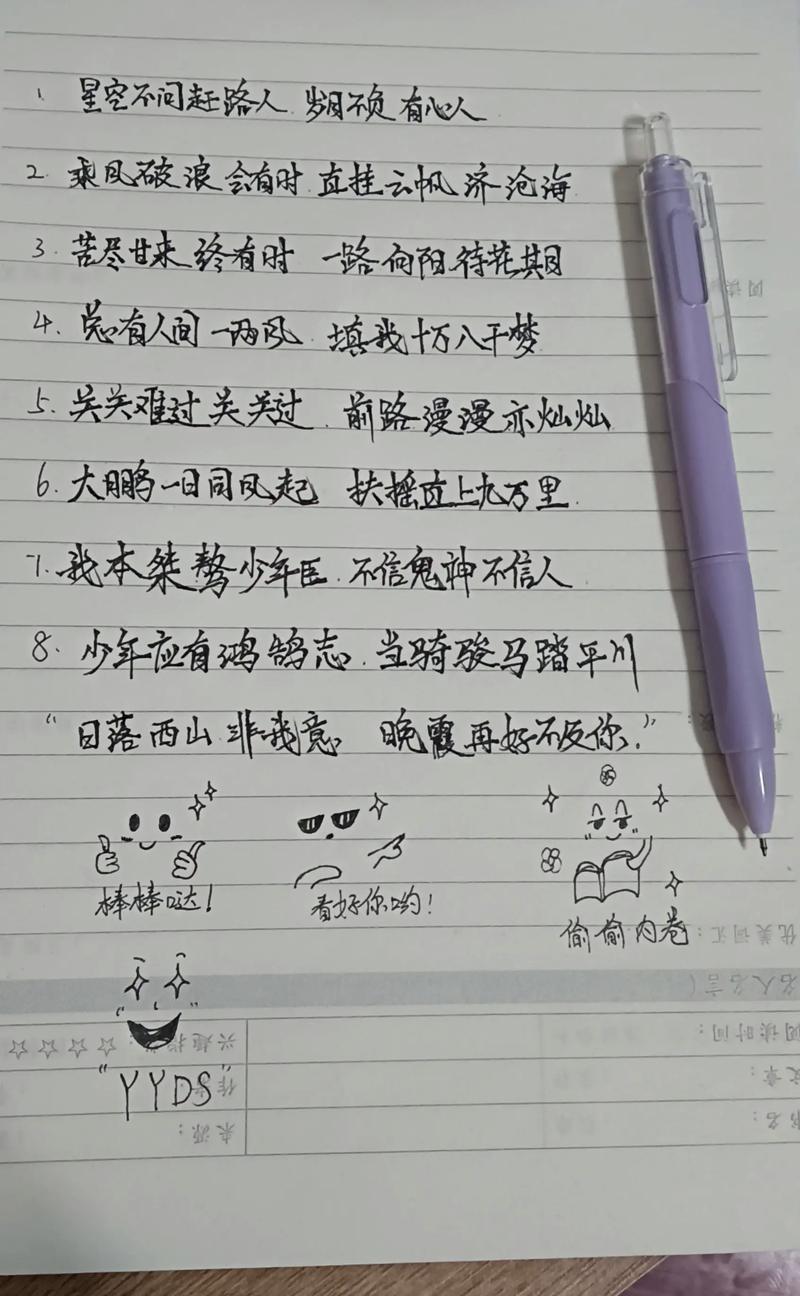 1. 星空不问赶路人 岁月不负有心人
2. 乘风破浪会有时 直挂云帆济沧海
3. 苦尽甘来终有时 一路向阳待花期
4. 总有人间一两风 填我十万八千梦
5. 关关难过关关过 前路漫漫亦灿灿
6. 大鹏一日同风起 扶摇直上九万里
7. 我本桀骜少年臣 不信鬼神不信人
8. 少年应有鸿鹄志 当骑骏马踏平川
“日落西山非我意 晚霞再好不及你.”
棒棒哒! 看好你哟! 偷偷内卷
“YYDS”
阅读
优美词汇:
名人名言(
阅读时间:
兴趣指数: ☆☆☆☆☆
文章:
作
书名:
来源: